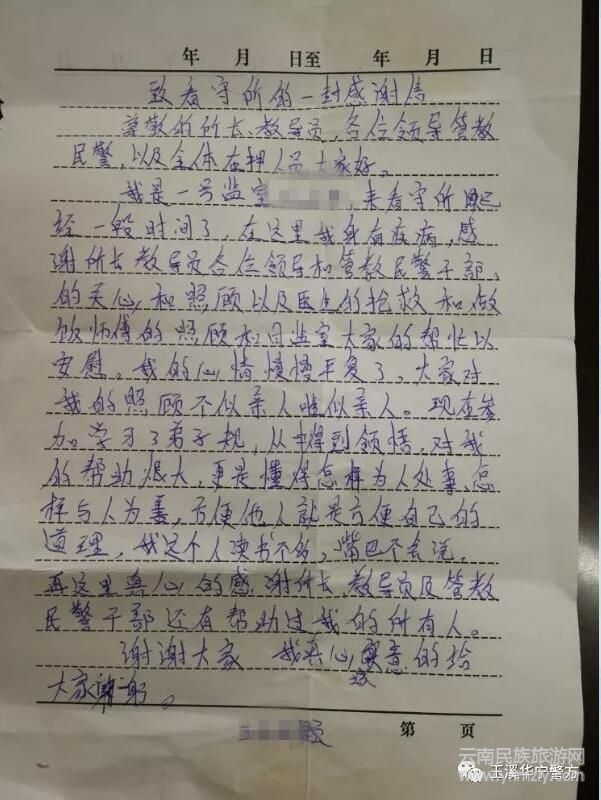 年 月 日至 年 月 日
致看守所的一封感谢信
尊敬的所长、教导员,各位领导管教
民警,以及全体在押人员大家好。
我是一号监室 ,来看守所已
经一段时间了,在这里我身有疾病,感
谢所长教导员各位领导和管教民警干部、
的关心,和照顾以及医生的抢救和做
饭师傅的照顾和同监室大家的帮忙以
安慰。我的心情慢慢平复了,大家对
我的照顾不似亲人胜似亲人。现在参
加学习了弟子规,从中得到领悟,对我
的帮助很大,更是懂得怎样为人处事、怎
样与人为善,方便他人就是方便自己的
道理,我这个人读书不多,嘴巴不会说,
再这里真心的感谢所长、教导员及管教
民警干部还有帮助过我的所有人。
谢谢大家 我真心实意的给
大家 躬。
第 页
云南民族旅游网
玉溪华宁警方